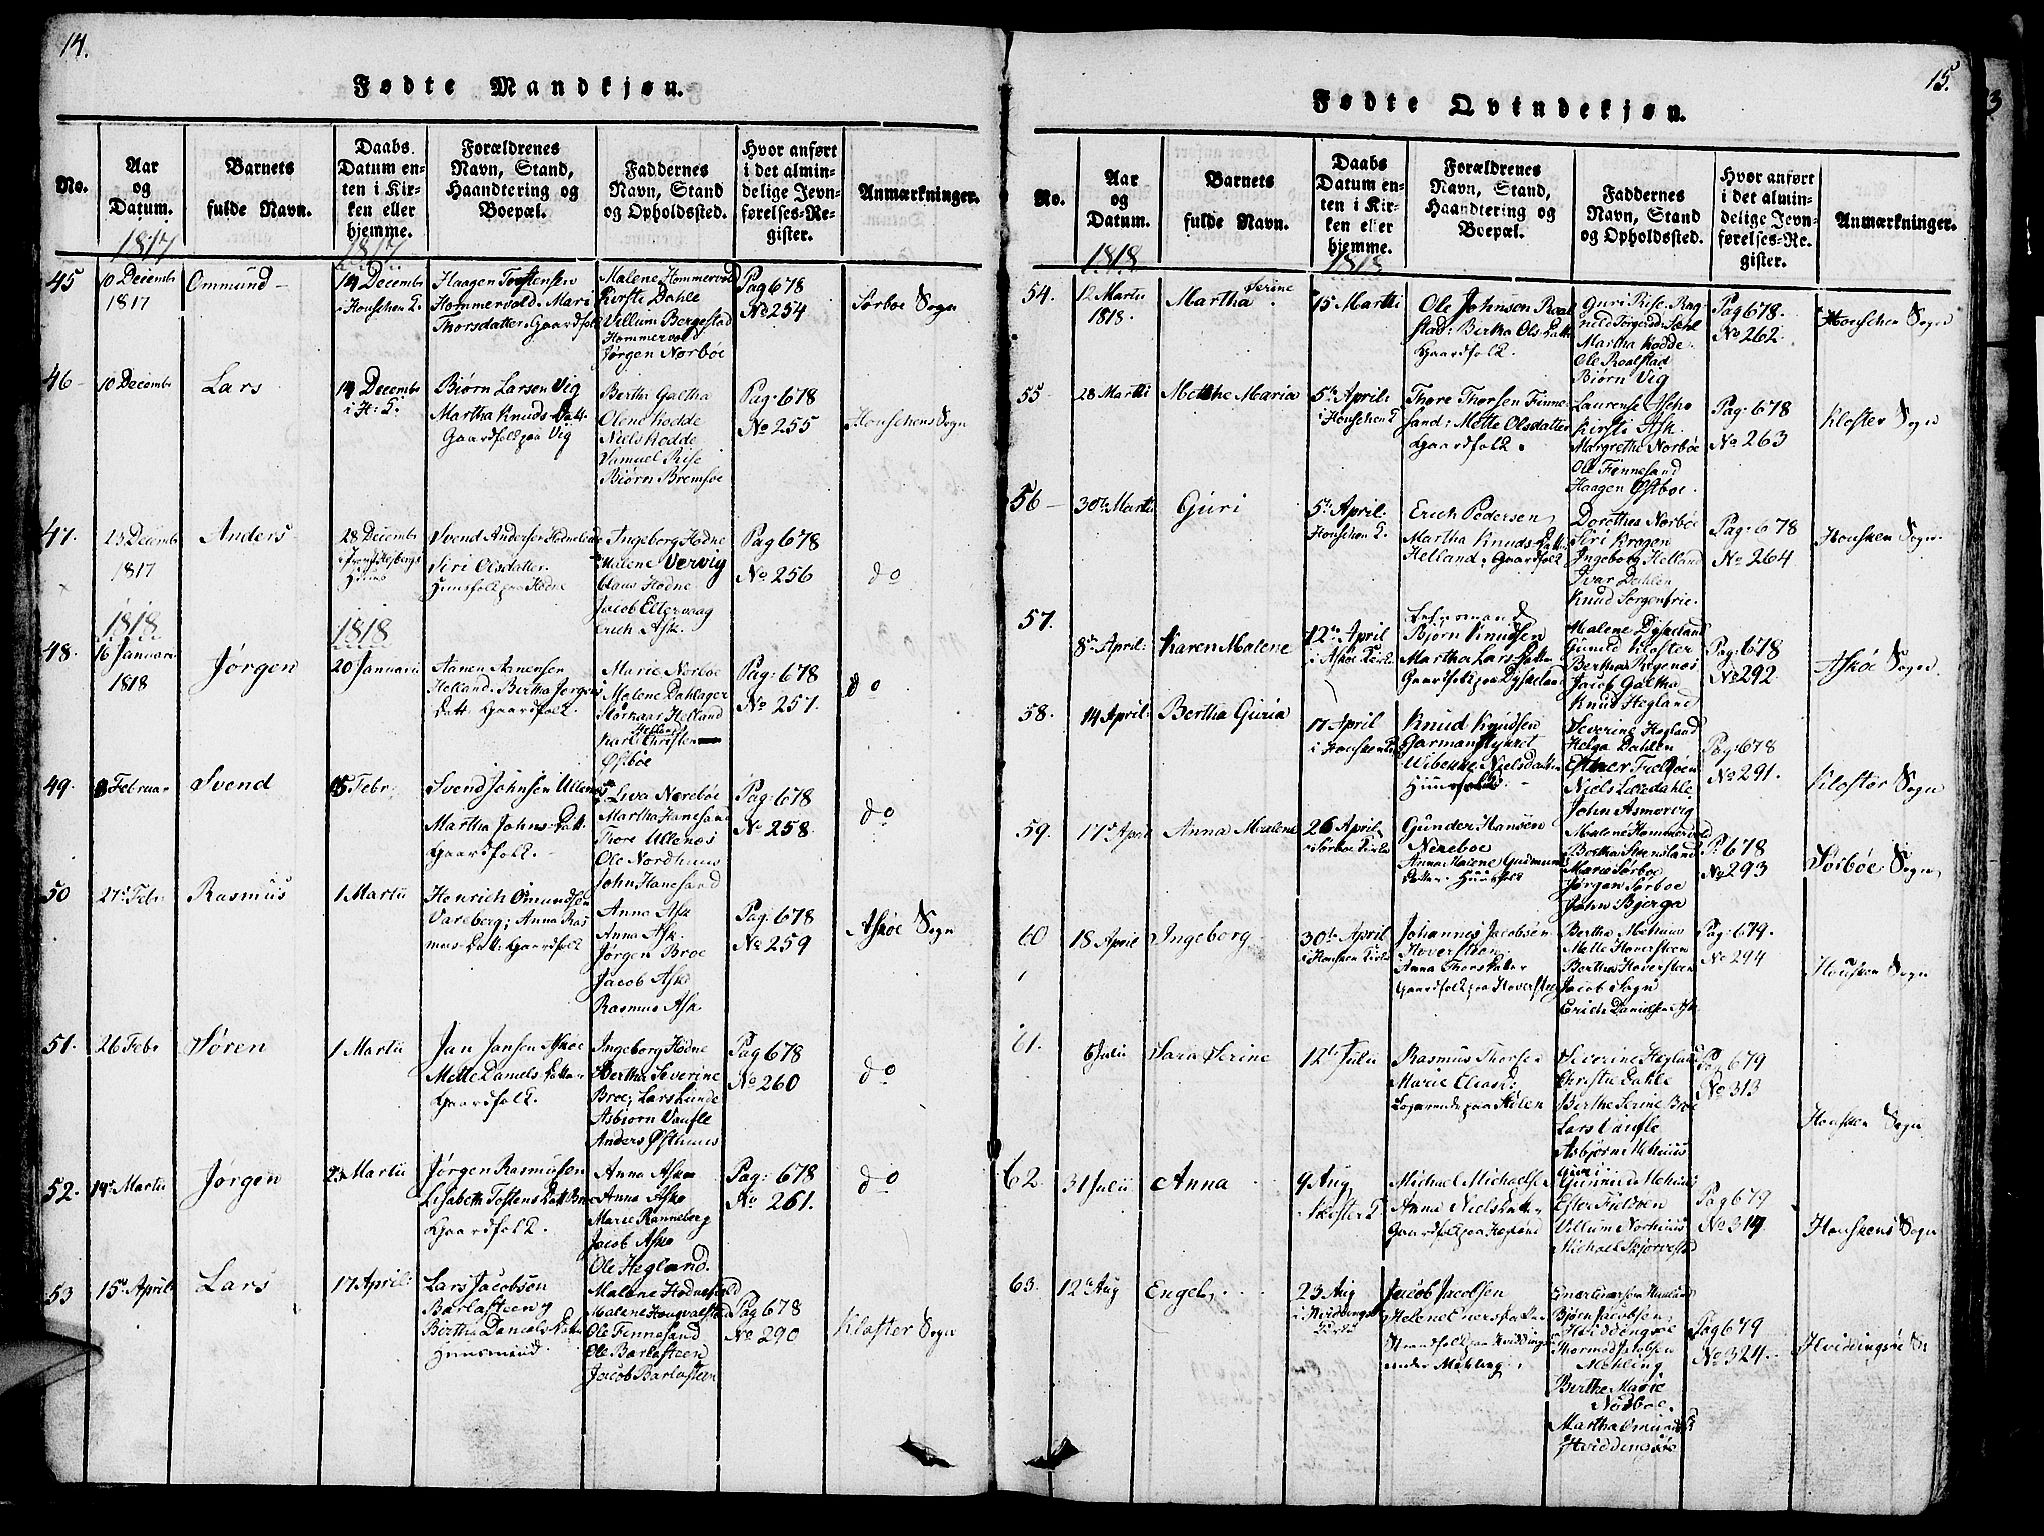 14.
Fødte Mandkjøn.
No.
Aar
og
Datum.
Barnets
fulde Navn.
Daabs
Datum en-
ten i Kir-
ken eller
hjemme.
Forældrenes
Navn, Stand,
Haandtering og
Boepæl.
Faddernes
Navn, Stand
og Opholdssted.
Hvor anført
i det almin-
delige Jevn-
førelses-Re-
gister.
Anmærkninger.
1817
1817
45
10 Decembr
1817
Ommund
14 Decembr
Haagen Tostensen
Hommervold. Mari
Thorsdatter. Gaardfolk
Malene Hommervold
Kirste Dahle
Villum Bergestad
Hommervold
Jørgen Norbøe
Pag 678
No 254
Sørboe Sogn
46
10 Decembr
Lars
14 Decembr
i H: K.
Biørn Larsen Vig
Martha Knuds Datt
Gaardfolk paa Vig
Bertha Galtha
Olene Hodde
Niels Hodde
Samuel Rise
Biørn Bremsøe
Pag: 678
No 255
Houschens Sogn
47.
23 Decembr
1817
Anders
28 Decembr
Huus
Svend Andersen
Siri Olsdatter
Huusfolk paa Hodne
Ingeborg Hodne
Malene Vervig
Claus Hodne
Jacob Eltervaag
Erich Ask.
Pag 678
No 256
do
1818
1818
48.
16 Januari
1818
Jørgen
20 Januarii
Asnen Asnensen
Helland. Bertha Jørgens
Datt. Gaardfolk.
Marie Norbøe
Malene Dahlager
Storkaar Helland
Karl Christen
Østbøe
Pag: 678
No 257.
do
49.
8 Februar
Svend
15 Febr:
Svend Johnsen Ullenes
Martha Johns Datt.
Gaardfolk.
Liva Norebøe
Martha Hanesand
Thore Ullenes
Ole Nordhuus
John Hanesand
Pag: 678
No 258.
do
50
27de Febr
Rasmus
1 Martii
Henrich Omundsen
Vareberg; Anna Ras
mus Datt: Gaardfolk
Anna Ask
Anna Ask.
Jørgen Broe
Jacob Aske
Rasmus Ask.
Pag: 678
No 259
Askøe Sogn
51.
26 Febr
Søren
1 Martii
Jan Jansen Askøe
Mette Daniels Datter
Gaardfolk.
Ingeborg Hodne
Bertha Severine
Broe; Lars Lunde
Asbiørn Vaufle
Anders Østhuus
Pag 678
No 260
do
52.
14de Martii
Jørgen
23 Martii
Jørgen Rasmussen
Lisabeth Tostens Datt Broe
Gaardfolk.
Anna Askøe
Anna Askø
Marie Ranneberg
Jacob Askø
Ole Hegland.
Pag: 678
No 261.
do
53
15de April
Lars
17 April:
Lars Jacobsen
Barlasteen
Bertha Daniels Datter
Huusmand.
Malene Hodnefield
Malene Hougvalestad
Ole Finnesand
Ole Barlasteen
Jacob Barlasteen
Pag 678
No 290
Kloster Sogn
15.
Fødte Qvindekjøn.
No.
Aar
og
Datum.
Barnets
fulde Navn.
Daabs
Datum en-
ten i Kir-
ken eller
hjemme.
Forældrenes
Navn, Stand,
Haandtering og
Boepæl.
Faddernes
Navn, Stand
og Opholdssted.
Hvor anført
i det almin-
delige Jevn-
førelses-Re-
gister.
Anmærkninger.
1818
1818
54.
12 Martii
1818.
Martha Serine
15 Martii
Ole Johnson Roal
stad: Bertha Ols Datt
Gaardfolk.
Guri Rise. Rag
Martha Hodde
Ole Roalstad
Biørn Vig
Pag 678.
No 262
Houschen Sogn
55
28 Martii
Methe Maria
5te April
i Houschen K
Thore Thorsen Finne
sand: Mette Olsdatter
Gaardfolk.
Laurense Askø
Kirsti Ask.
Margrethe Norbøe
Ole Finnesand
Haagen Østbøe
Pag: 678
No 263
Kloster Sogn
56
30te Martii
Guri
5te April
Houschen K.
Erich Pedersen
Martha Knuds Datter
Helland; Gaardfolk
Dorothea Norbøe
Siri Krogen
Ingeborg Helland
Ivar Dahlen
Knud Sorgenfrie.
Pag: 678
No 264
Housken Sogn.
57.
8de April:
Karen Malene
12te April
i Askøe Kirke
Biørn Knudsen
Martha Lars Datter
Gaardfolk paa Dyskeland
Malene Dyskeland
Gunild Kloster
Bertha Regenes
Jacob Galtha
Knud Hegland
Pag: 678
No 292
Askøe Sogn
58.
14 April
Bertha Guria
17 April
i Housken K
Knud Knudsen
Garmanstykket
Wibekke Nielsdatter
Huusfolk.
Severine Hegland
Helga Dahlen
Ester Fieldøen
Niels Leredahle
John Asmervig
Pag: 678
No 291.
Kloster Sogn
59.
17de April
Anna Malene
26 April
i Sørboe Kirke
Gunder Hansen
Nereboe
Anna Malene Gudmunds
Datter. Huusfolk
Malene Hommervold
Bertha Steensland
Maree Sørboe
Jørgen Sørboe
John Bjerga
P. 678
No 293
Sørbøe Sogn
60
18 April
Ingeborg
30te April
i Housken Kirke
Johannes Jacobsen
Hoversteen
Anna Thorsdatter
Gaardfolk paa Hoversteen
Bertha Mehuus
Mette Hoversteen
Bertha Hoversteen
Jacob Sogn
Erich Danielsen Ask
Pag: 679.
No 294
Housken Sogn
61.
6 Julii
Sara Serine
12te Julii
Rasmus Thorsen
Marie Eliasd:
Logerende paa Skilen
Severine Hegland
Christie Dahle
Berthe Serine Broe
Lars Vaufle
Asbjørn Mehuus
Pag 679
No 313
Housken Sogn
62.
31 Julii
Anna
9 Aug
Kloster K
Michael Michaelsen
Anna Nielsdatter
Gaardfolk paa Hegland
Guri
Gunnild Mehuus
Ester Fieldøen
Villum Norhuus
Michael Skjørvestad
Pag 679
No 314
Houskens Sogn
63.
12te Aug
Engel
23 Aug
i Hviddingsøe
Kirke
Jacob Jacobsen
Helene Enersdatter
Strandfolk paa Hviddingsøe
under Mehling.
Biørn Jacobsen
Hviddingsøe
Mehling
Berthe Marie
Nordboe.
Martha Osmunds D
Hviddingsøe
Pag 679
No 324
Hviddingsøe Sn